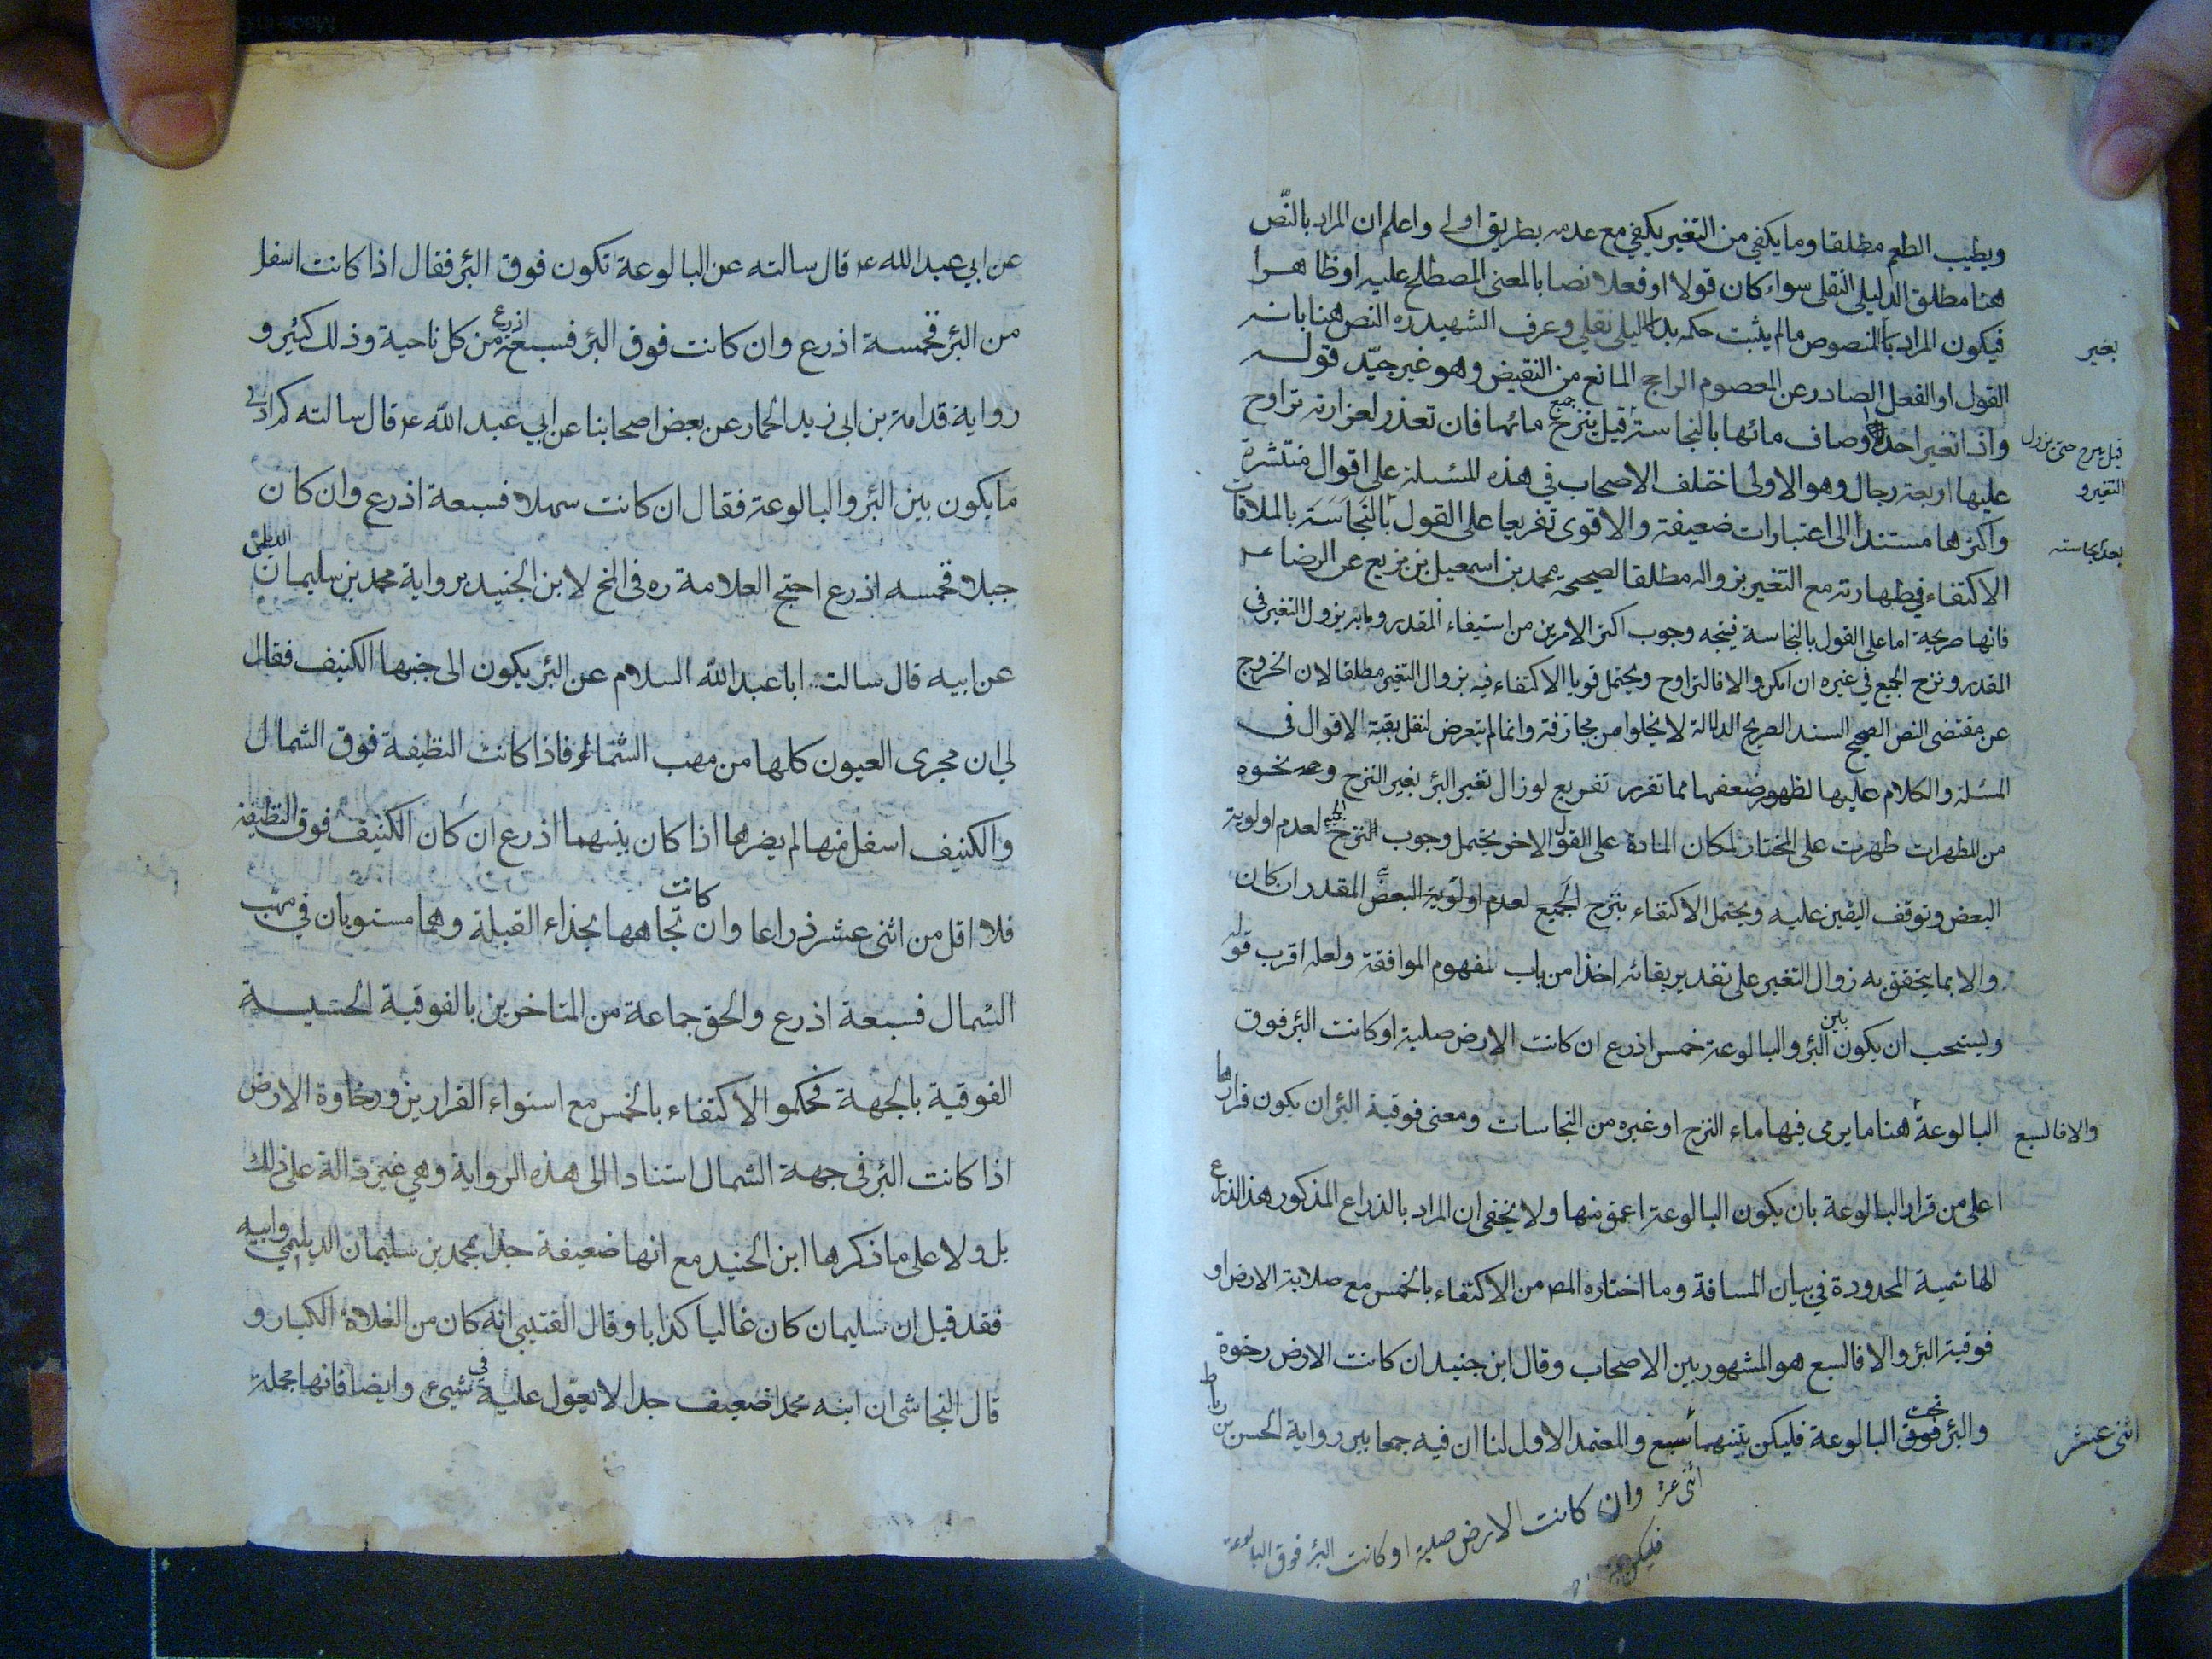 ويطيب الطعم مطلقا وما يكفي من التغير يكفي مع عدمه بطريق اولى واعلم ان المراد بالنّص
هنا مطلق الدليلي النقلي سواء كان قولا او فعلا نصا بالمعنى المصطلح عليه او ظاهرا
فيكون المراد بالمنصوص مالم يثبت حكمه بدليلي نقلي وعرف الشهيد ره النص هنا بانه
بغير
القول او الفعل الصادر عن المعصوم الراجح المانع من النقيض وهو غير جيّد قوله
واذا تغير احد اوصاف مائها بالنجاسة قيل ينزح جميع مائها فان تعذر لغزارته تراوح
قيل ينزح حتى يزول
التغير و
عليها اربعة رجال وهو الاولى اختلف الاصحاب في هذه المسئلة على اقوال منتشرة
واكثرها مستندا الى اعتبارات ضعيفة والاقوى تفريعا على القول بالنجاسة بالملاقات
بعد نجاسته
الاكتفاء في طهارته مع التغير بزواله مطلقا لصحيحة محمد بن اسمعيل بن بزيع عن الرضا ع
فانها صريحة اما على القول بالنجاسة فيتجه وجوب اكثر الامرين من استيفاء المقدر وما به يزول التغير في
المقدر ونزح الجميع في غيره ان امكن والا فالتراوح ويحتمل قويا الاكتفاء فيه بزوال التغير مطلقا لان الخروج
عن مقتضى النص الصحيح السند الصريح الدلالة لا يخلوا من مجازفة وانما لم نتعرض لنقل بقية الاقوال في
المسئلة والكلام عليها لظهور ضعفها مما تقرر تفريع لو زال تغير البئر بغير النزح ونحوه
من المطهرات طهرت على المختار لمكان المادة على القول الاخر يحتمل وجوب النزح الجميع لعدم اولوية
البعض وتوقف اليقين عليه ويحتمل الاكتفاء بنزح الجميع لعدم اولوية البعض المقدر ان كان
والا بما يتحقق به زوال التغير على تقدير بقائه اخذا من باب مفهوم الموافقة ولعله اقرب قوله
ويستحب ان يكون بين البئر والبالوعة خمس اذرع ان كانت الارض صلبة او كانت البئر فوق
والا فالسبع
البالوعة هنا ما يرمى فيها ماء النزح او غيره من النجاسات ومعنى فوقية البئر ان يكون قرارها
اعلى من قرار البالوعة بان يكون البالوعة اعمق منها ولا يخفى ان المراد بالذراع المذكور هذا الذراع
الهاشمية المحدودة في بيان المسافة وما اختاره المص من الاكتفاء بالخمس مع صلابة الارض او
فوقية البئر والا فالسبع هو المشهور بين الاصحاب وقال ابن جنيد ان كانت الارض رخوة
والبئر فوق تحت البالوعة فليكن بينهما سبع والمعتمد الاول لنا ان فيه جمعا بين رواية الحسن بن رباط
اثنى عشر
اثنى عشر وان كانت الارض صلبة او كانت البئر فوق البالوعة
فليكن
عن ابي عبد الله ع قال سالته عن البالوعة تكون فوق البئر فقال اذا كانت اسفل
من البئر فخمسة اذرع وان كانت فوق البئر فسبعة اذرع من كل ناحية وذلك كثير و
رواية قدامة بن ابي زيد الحمار عن بعض اصحابنا عن ابي عبد الله ع قال سالته كم ادنى
ما يكون بين البئر والبالوعة فقال ان كانت سهلا فسبعة اذرع وان كان
جبلا فخمسه اذرع احتج العلامة ره في المخ لابن الجنيد برواية محمد بن سليمان الديلمي
عن ابيه قال سالت ابا عبد الله السلام عن البئر يكون الى جنبها الكنيف فقال
لي ان مجرى العيون كلها من مهب الشمال فاذا كانت النظيفة فوق الشمال
والكنيف اسفل منها لم يضرها اذا كان بينهما اذرع ان كان الكنيف فوق النظيفة
فلا اقل من اثنى عشر ذراعا وان كانت تجاهها بحذاء القبلة وهما مستويان في مهب
الشمال فسبعة اذرع والحق جماعة من المتاخرين بالفوقية الحسية
الفوقية بالجهة فحكموا الاكتفاء بالخمس مع استواء القرارين ورخاوة الارض
اذا كانت البئر في جهة الشمال استنادا الى هذه الرواية وهي غير دالة على ذلك
بل ولا على ما ذكرها ابن الجنيد مع انها ضعيفة جدا بمحمد بن سليمان الديلمي وابيه
فقد قيل ان سليمان كان غاليا كذابا وقال القتيبي انه كان من الغلاة الكبار و
قال النجاشي ان ابنه محمدا ضعيف جدا لا يعول عليه في شيئ وايضا فانها مجملة